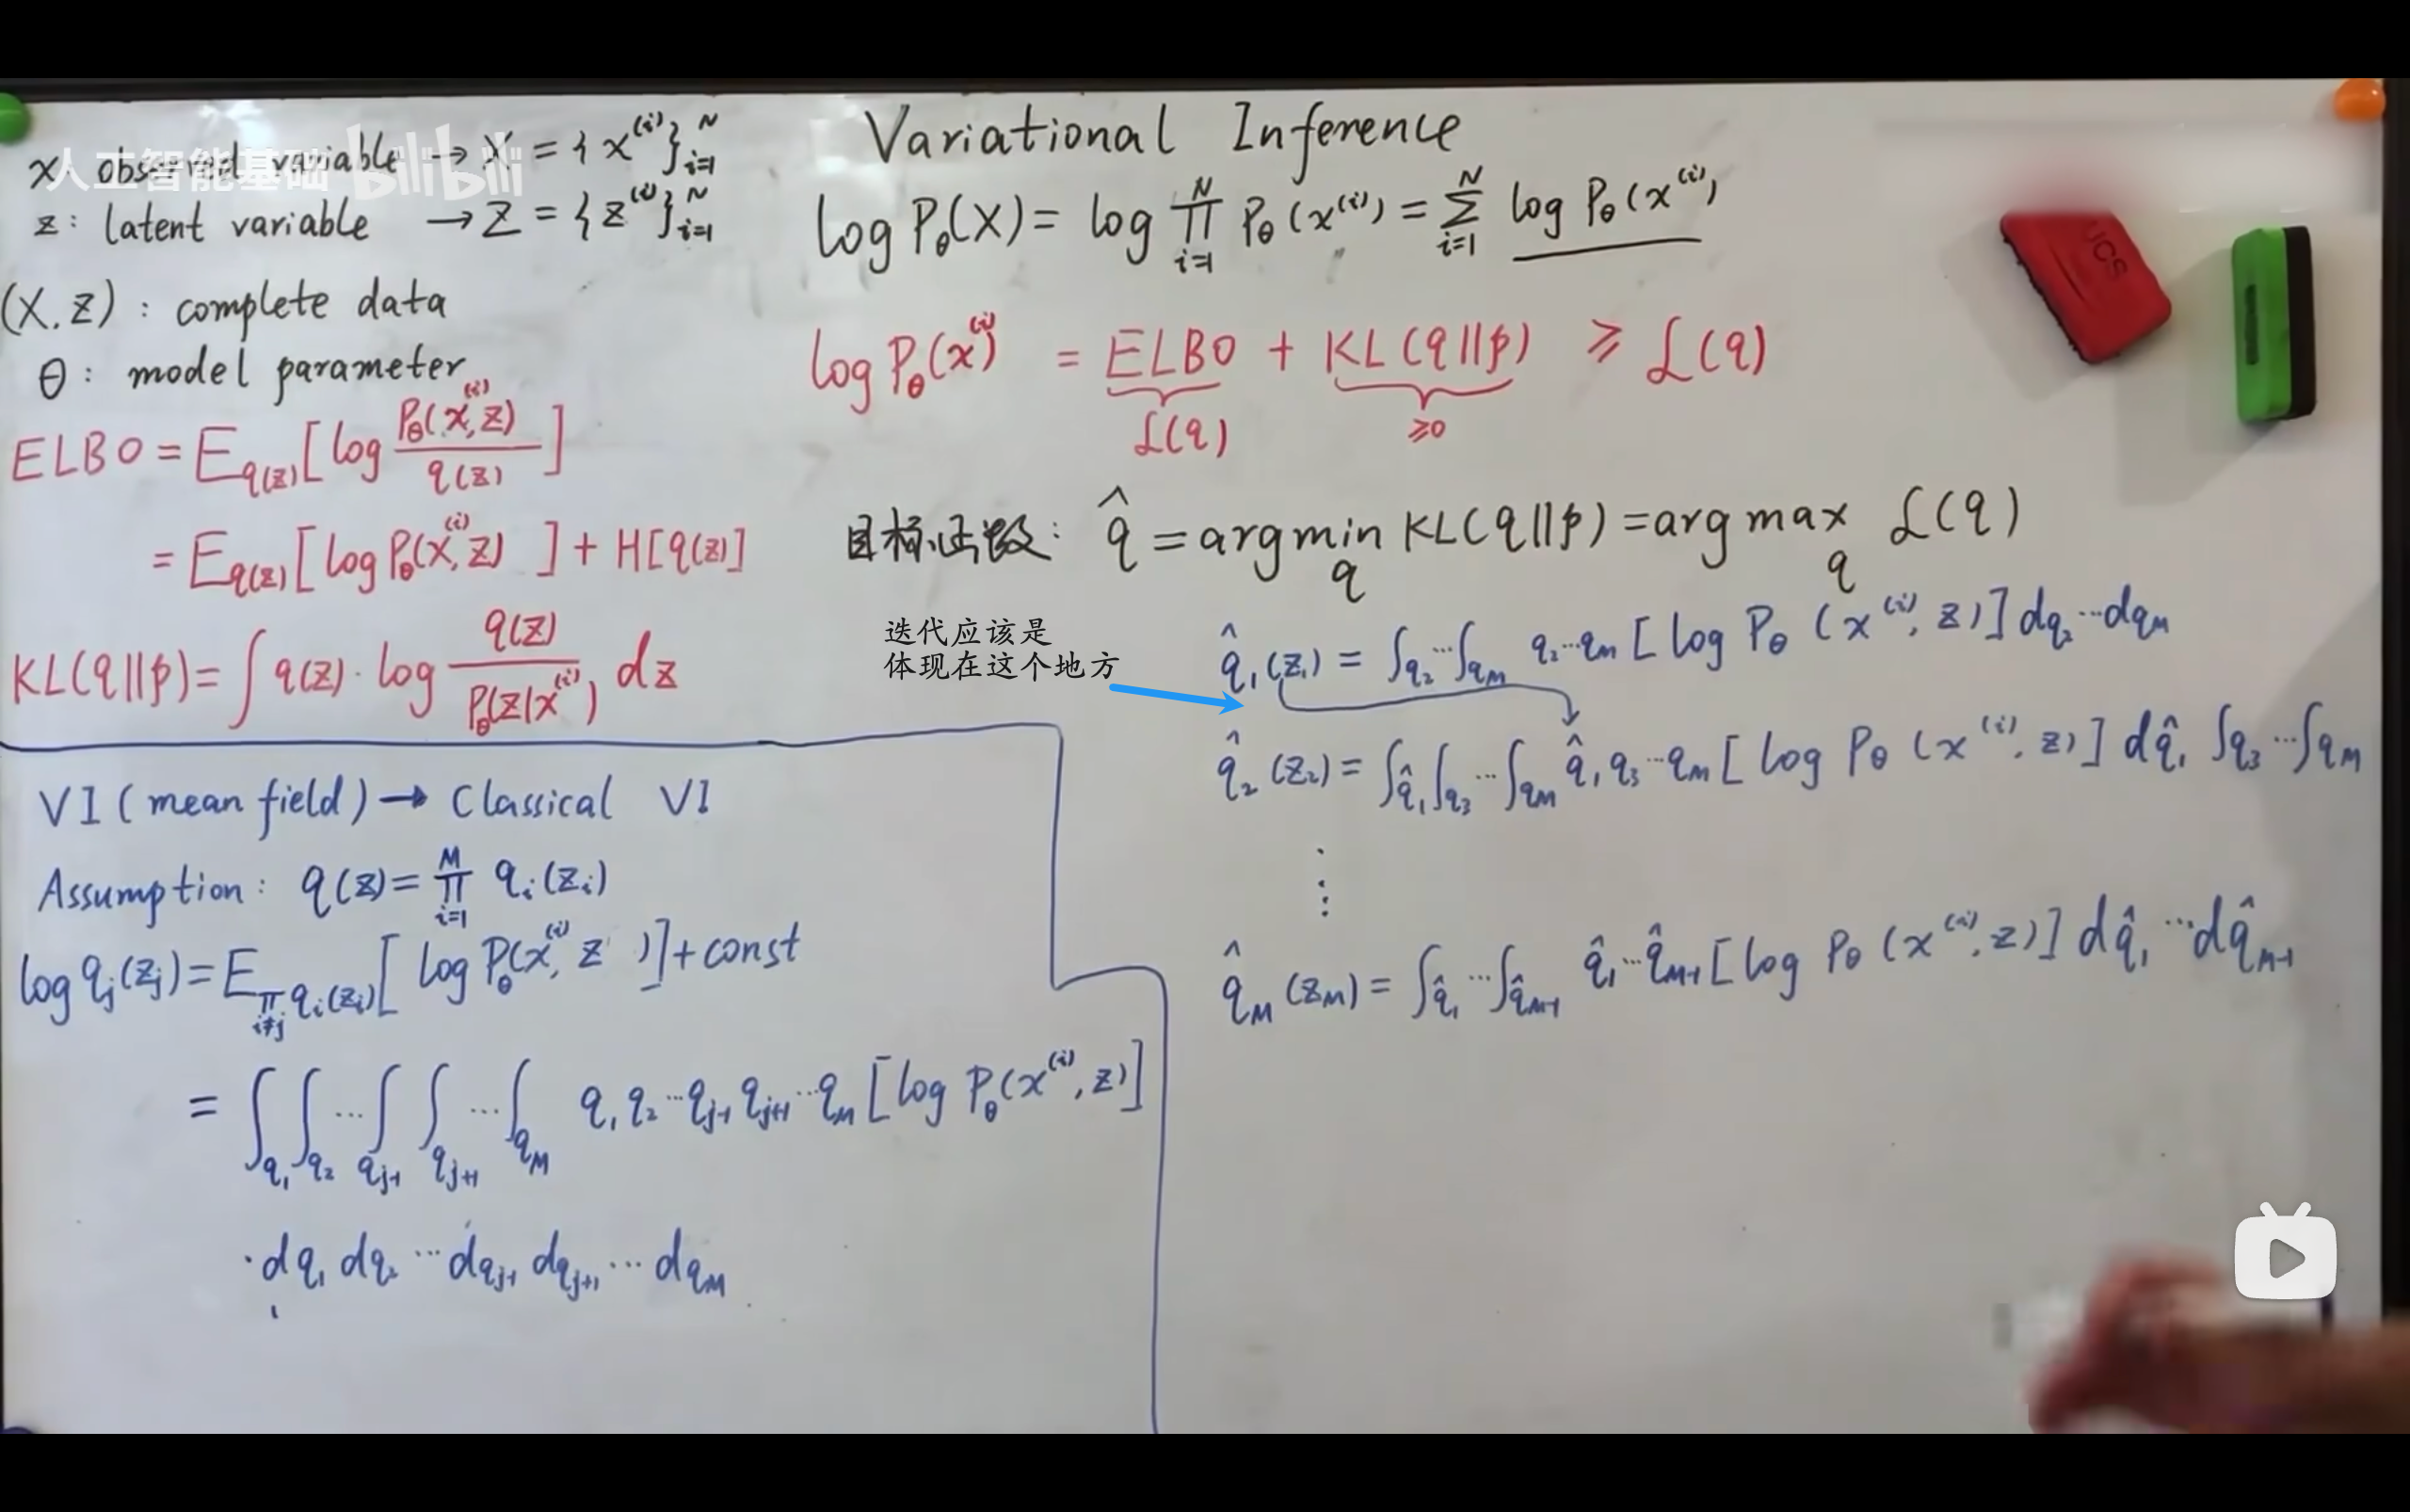 人工智能基础 bilibili
x: observed variable → X = {x^(i)}_{i=1}^N
z: latent variable → Z = {z^(i)}_{i=1}^N
(X, Z): complete data
θ: model parameter
ELBO = E_{q(z)}[log P_θ(x^(i), z) / q(z)]
= E_{q(z)}[log P_θ(x^(i), z)] + H[q(z)]
KL(q||p) = ∫ q(z) · log q(z) / P_θ(z|x^(i)) dz
Variational Inference
log P_θ(X) = log ∏_{i=1}^N P_θ(x^(i)) = Σ_{i=1}^N log P_θ(x^(i))
log P_θ(x^(i)) = ELBO + KL(q||p) ≥ L(q)
L(q) ≥0
目标函数: q̂ = arg min_q KL(q||p) = arg max_q L(q)
VI (mean field) → Classical VI
Assumption: q(z) = ∏_{i=1}^M q_i(z_i)
log q_j(z_j) = E_{∏_{i≠j} q_i(z_i)}[log P_θ(x^(i), z)] + const
= ∫_{q_1} ∫_{q_2} … ∫_{q_{j-1}} ∫_{q_{j+1}} … ∫_{q_M} q_1 q_2 … q_{j-1} q_{j+1} … q_m [log P_θ(x^(i), z)]
· dq_1 dq_2 … dq_{j-1} dq_{j+1} … dq_M
迭代应该是
体现在这个地方
q̂_1(z_1) = ∫_{q_2} … ∫_{q_M} q_2 … q_m [log P_θ(x^(i), z)] dq_2 … dq_M
q̂_2(z_2) = ∫_{q̂_1} ∫_{q_3} … ∫_{q_M} q̂_1 q_3 … q_M [log P_θ(x^(i), z)] dq̂_1 ∫q_3 … ∫q_M
⋮
q̂_M(z_M) = ∫_{q̂_1} … ∫_{q̂_{M-1}} q̂_1 … q̂_{M-1} [log P_θ(x^(i), z)] dq̂_1 … dq̂_{M-1}